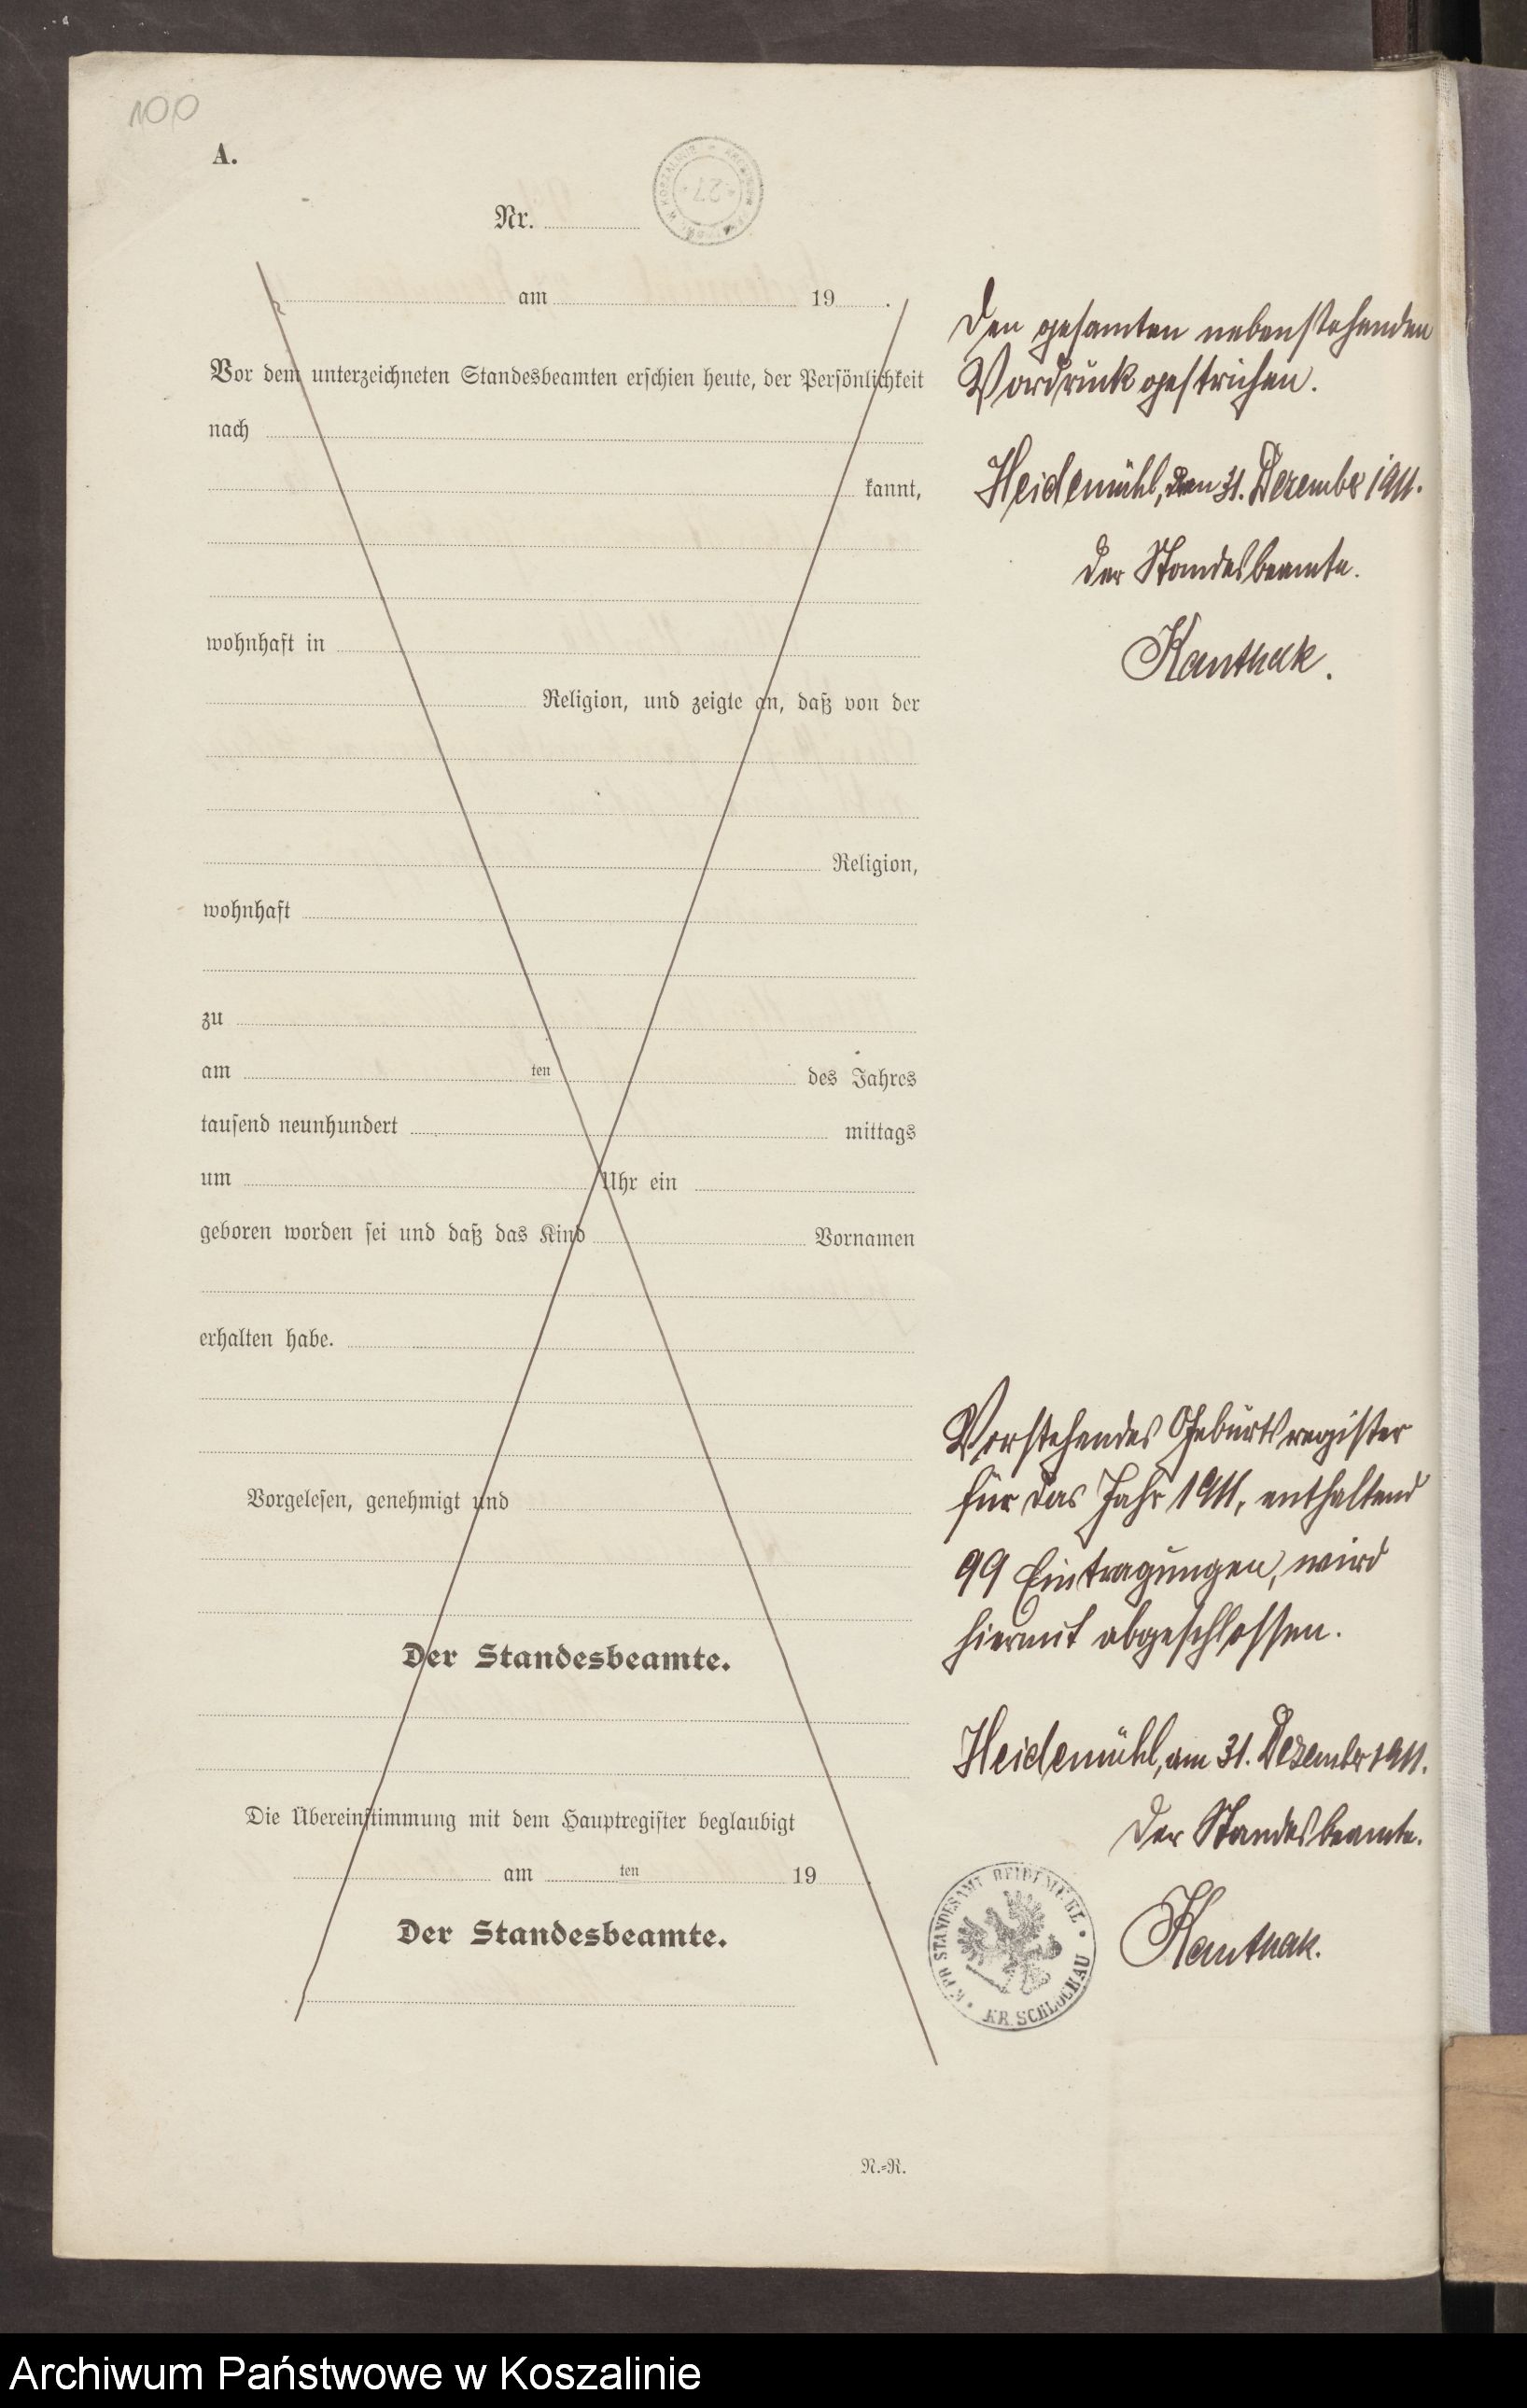 100
A.
Nr.
27
am 19 .
Vor dem unterzeichneten Standesbeamten erschien heute, der Persönlichkeit
nach
kannt,
wohnhaft in
Religion, und zeigte an, daß von der
Religion,
wohnhaft
zu
am ten des Jahres
tausend neunhundert mittags
um Uhr ein
geboren worden sei und daß das Kind Vornamen
erhalten habe.
Vorgelesen, genehmigt und
Der Standesbeamte.
Die Übereinstimmung mit dem Hauptregister beglaubigt
am ten 19 .
Der Standesbeamte.
N.=R.
Den gesamten nebenstehenden
Vordruck gestrichen.
Heidemühl, den 31. Dezember 1911.
Der Standesbeamte.
Kanthak.
Vorstehendes Geburtsregister
für das Jahr 1911, enthaltend
99 Eintragungen, wird
hiermit abgeschlossen.
Heidemühl, am 31. Dezember 1911.
Der Standesbeamte.
Kanthak.
K. PR. STANDESAMT HEIDEMÜHL
KR. SCHLOCHAU
Archiwum Państwowe w Koszalinie